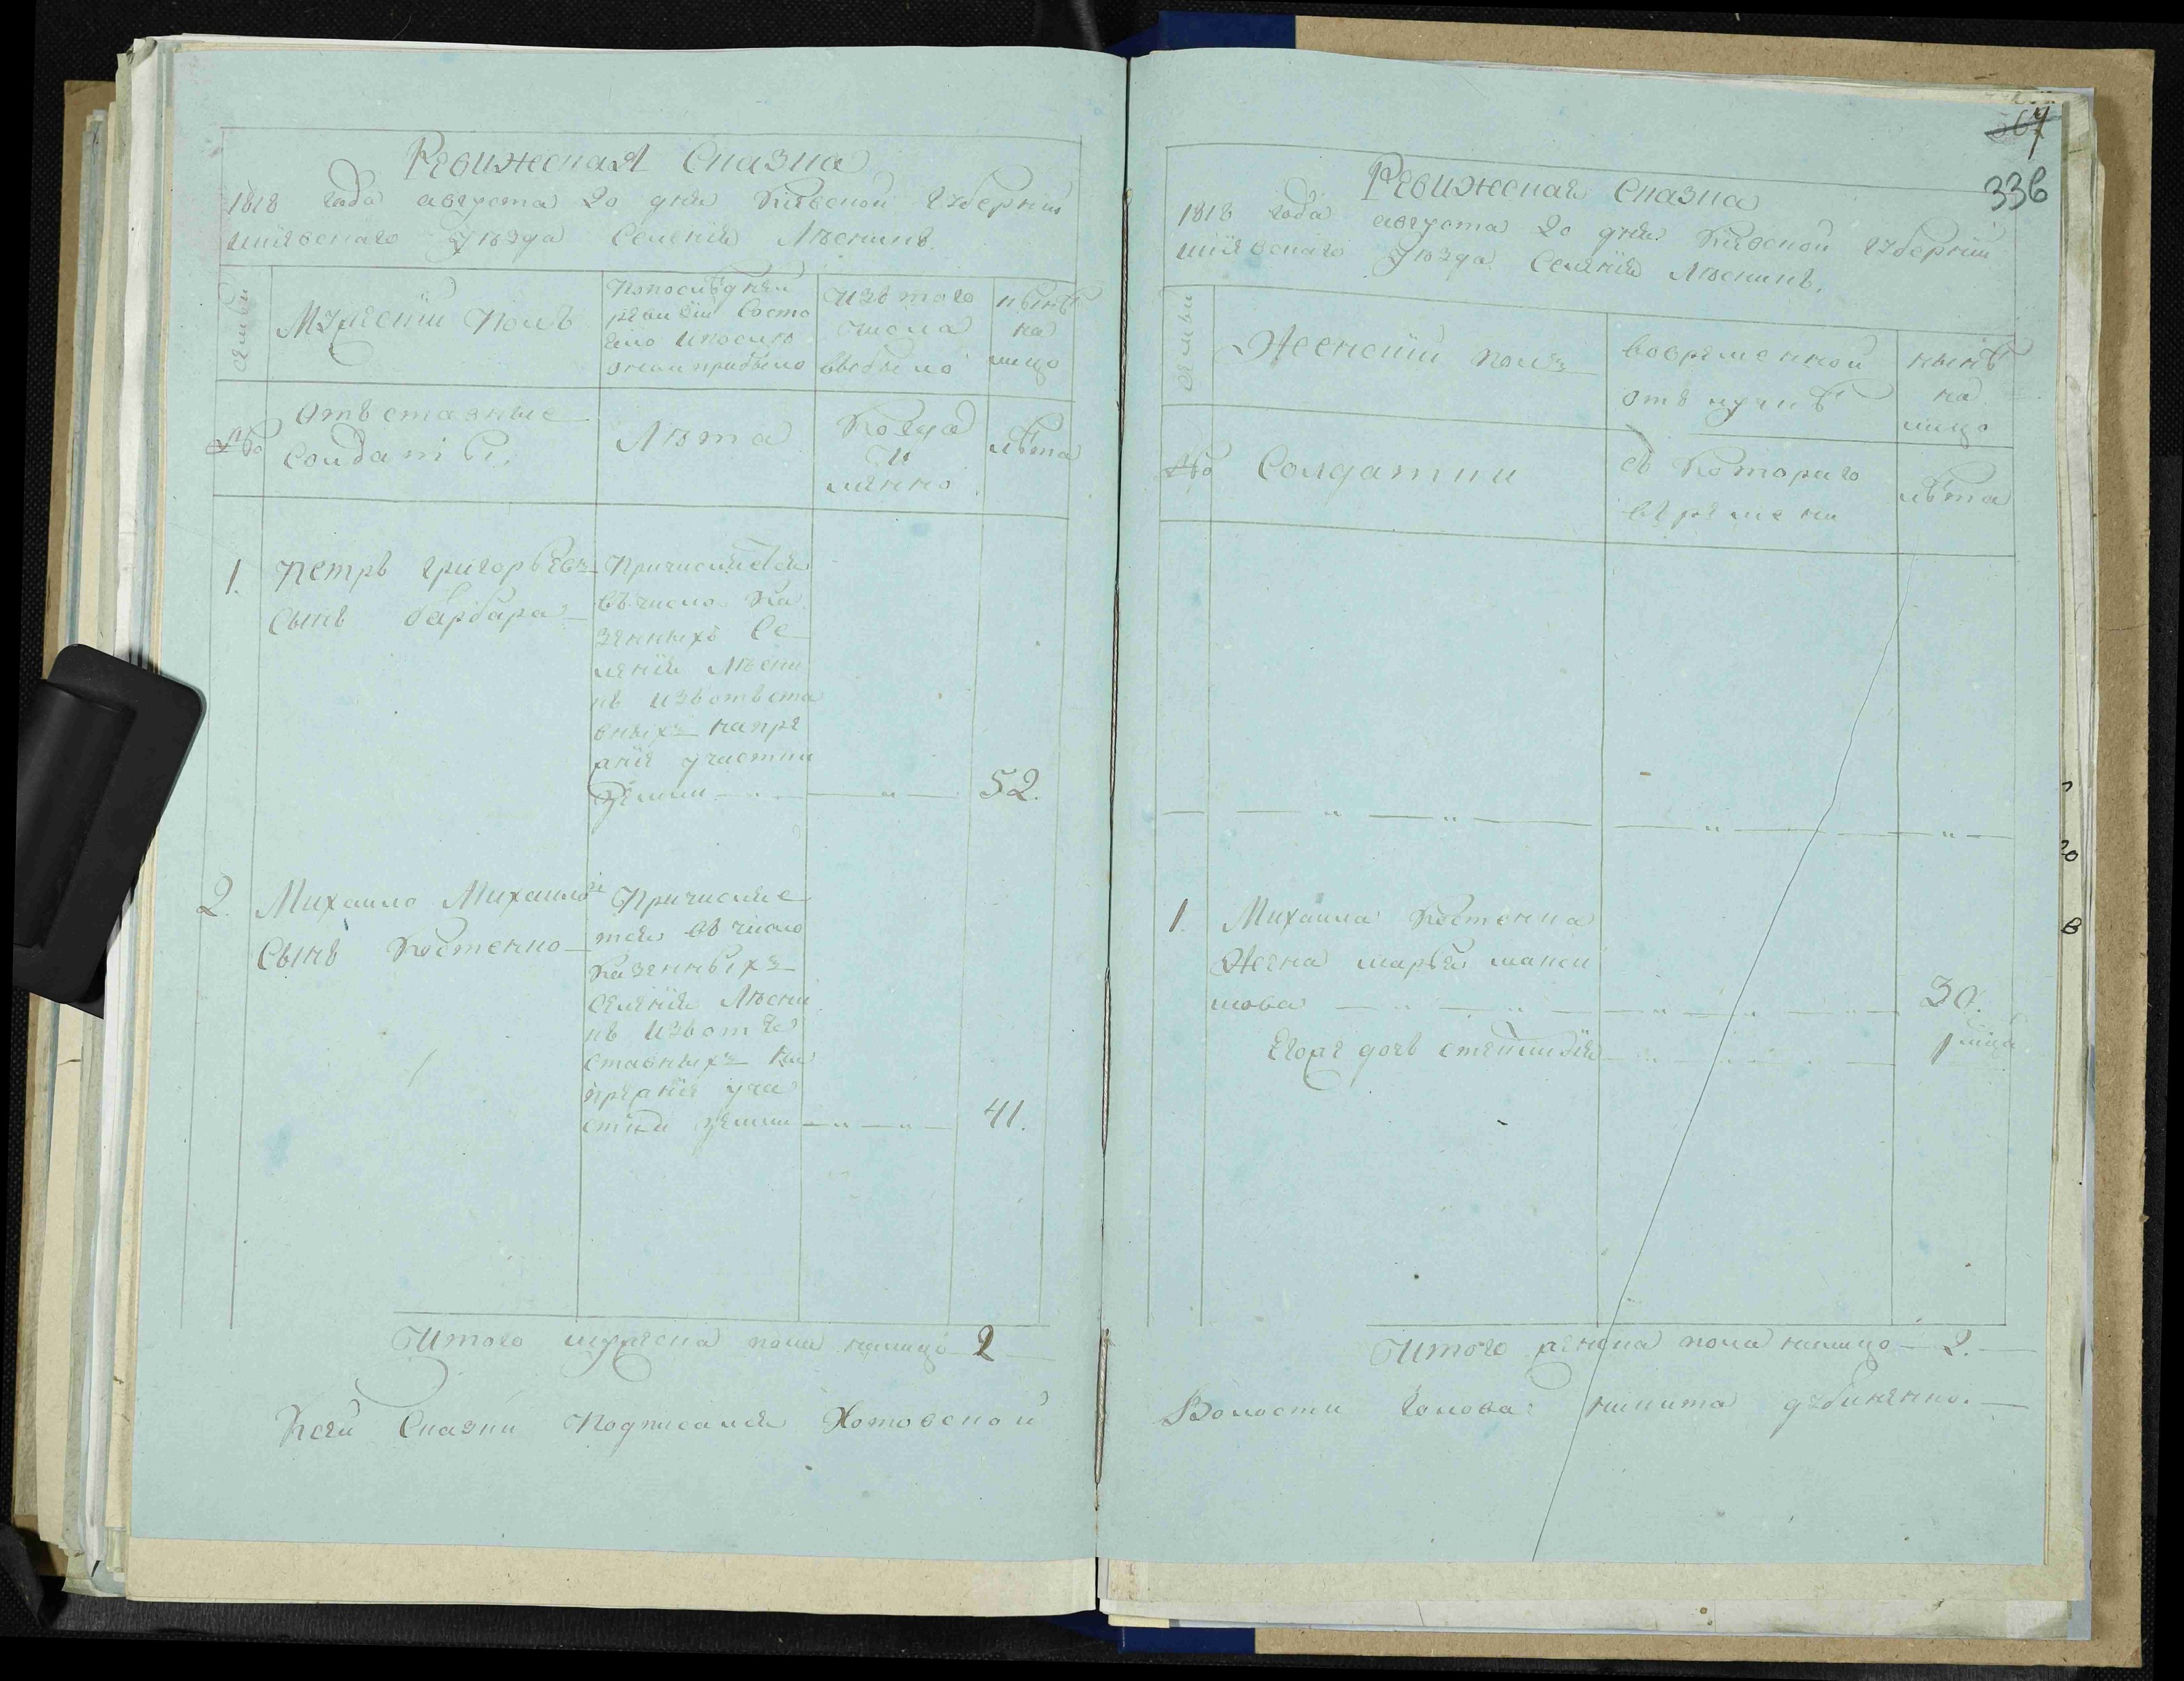 Ревижеская Сказка
1818 года августа 20 дня Киевской губернии
Киевскаго уѣзда Селения Лѣсникъ.
Семьи
Мужески Полъ
Попослѣдней
ревизии Состо
яло ипослѣ
онои прибыло
Изъ того
числа
выбыло
нынѣ
на
лицо
№
Отъставные
Солдаты.
Лѣта
Когда
И
менно
лѣта
1. Петръ Григорьевъ
Сынъ Барбара
Причисляется
въ число Ка
зенныхъ Се
ления Лѣсни
къ изъ отъста
вныхъ
участки
земли 52.
2. Михаило Михаилов
Сынъ Костенко
Причисляе
тся въ число
Казенныхъ
Селения Лѣсни
къ изъ от
ставныхъ
уча
стки земли 41.
Итого мужеска пола налицо 2
Ксеи Сказки Подписался Хотовской
367
336
Ревижеская Сказка
1818 года августа 20 дня Киевской губернии
Киевскаго уѣзда Селения Лѣсникъ.
Семьи
Женский полъ
вовременной
отълучкѣ
нынѣ
на
лицо
№
Солдатки
съ Котораго
времени
лѣта
1. Михаила Костенка
Жена марья макси
мова 30.
Егоже дочь 1
Итого женска пола налицо 2.
Волости Голова: никита дубиненко.